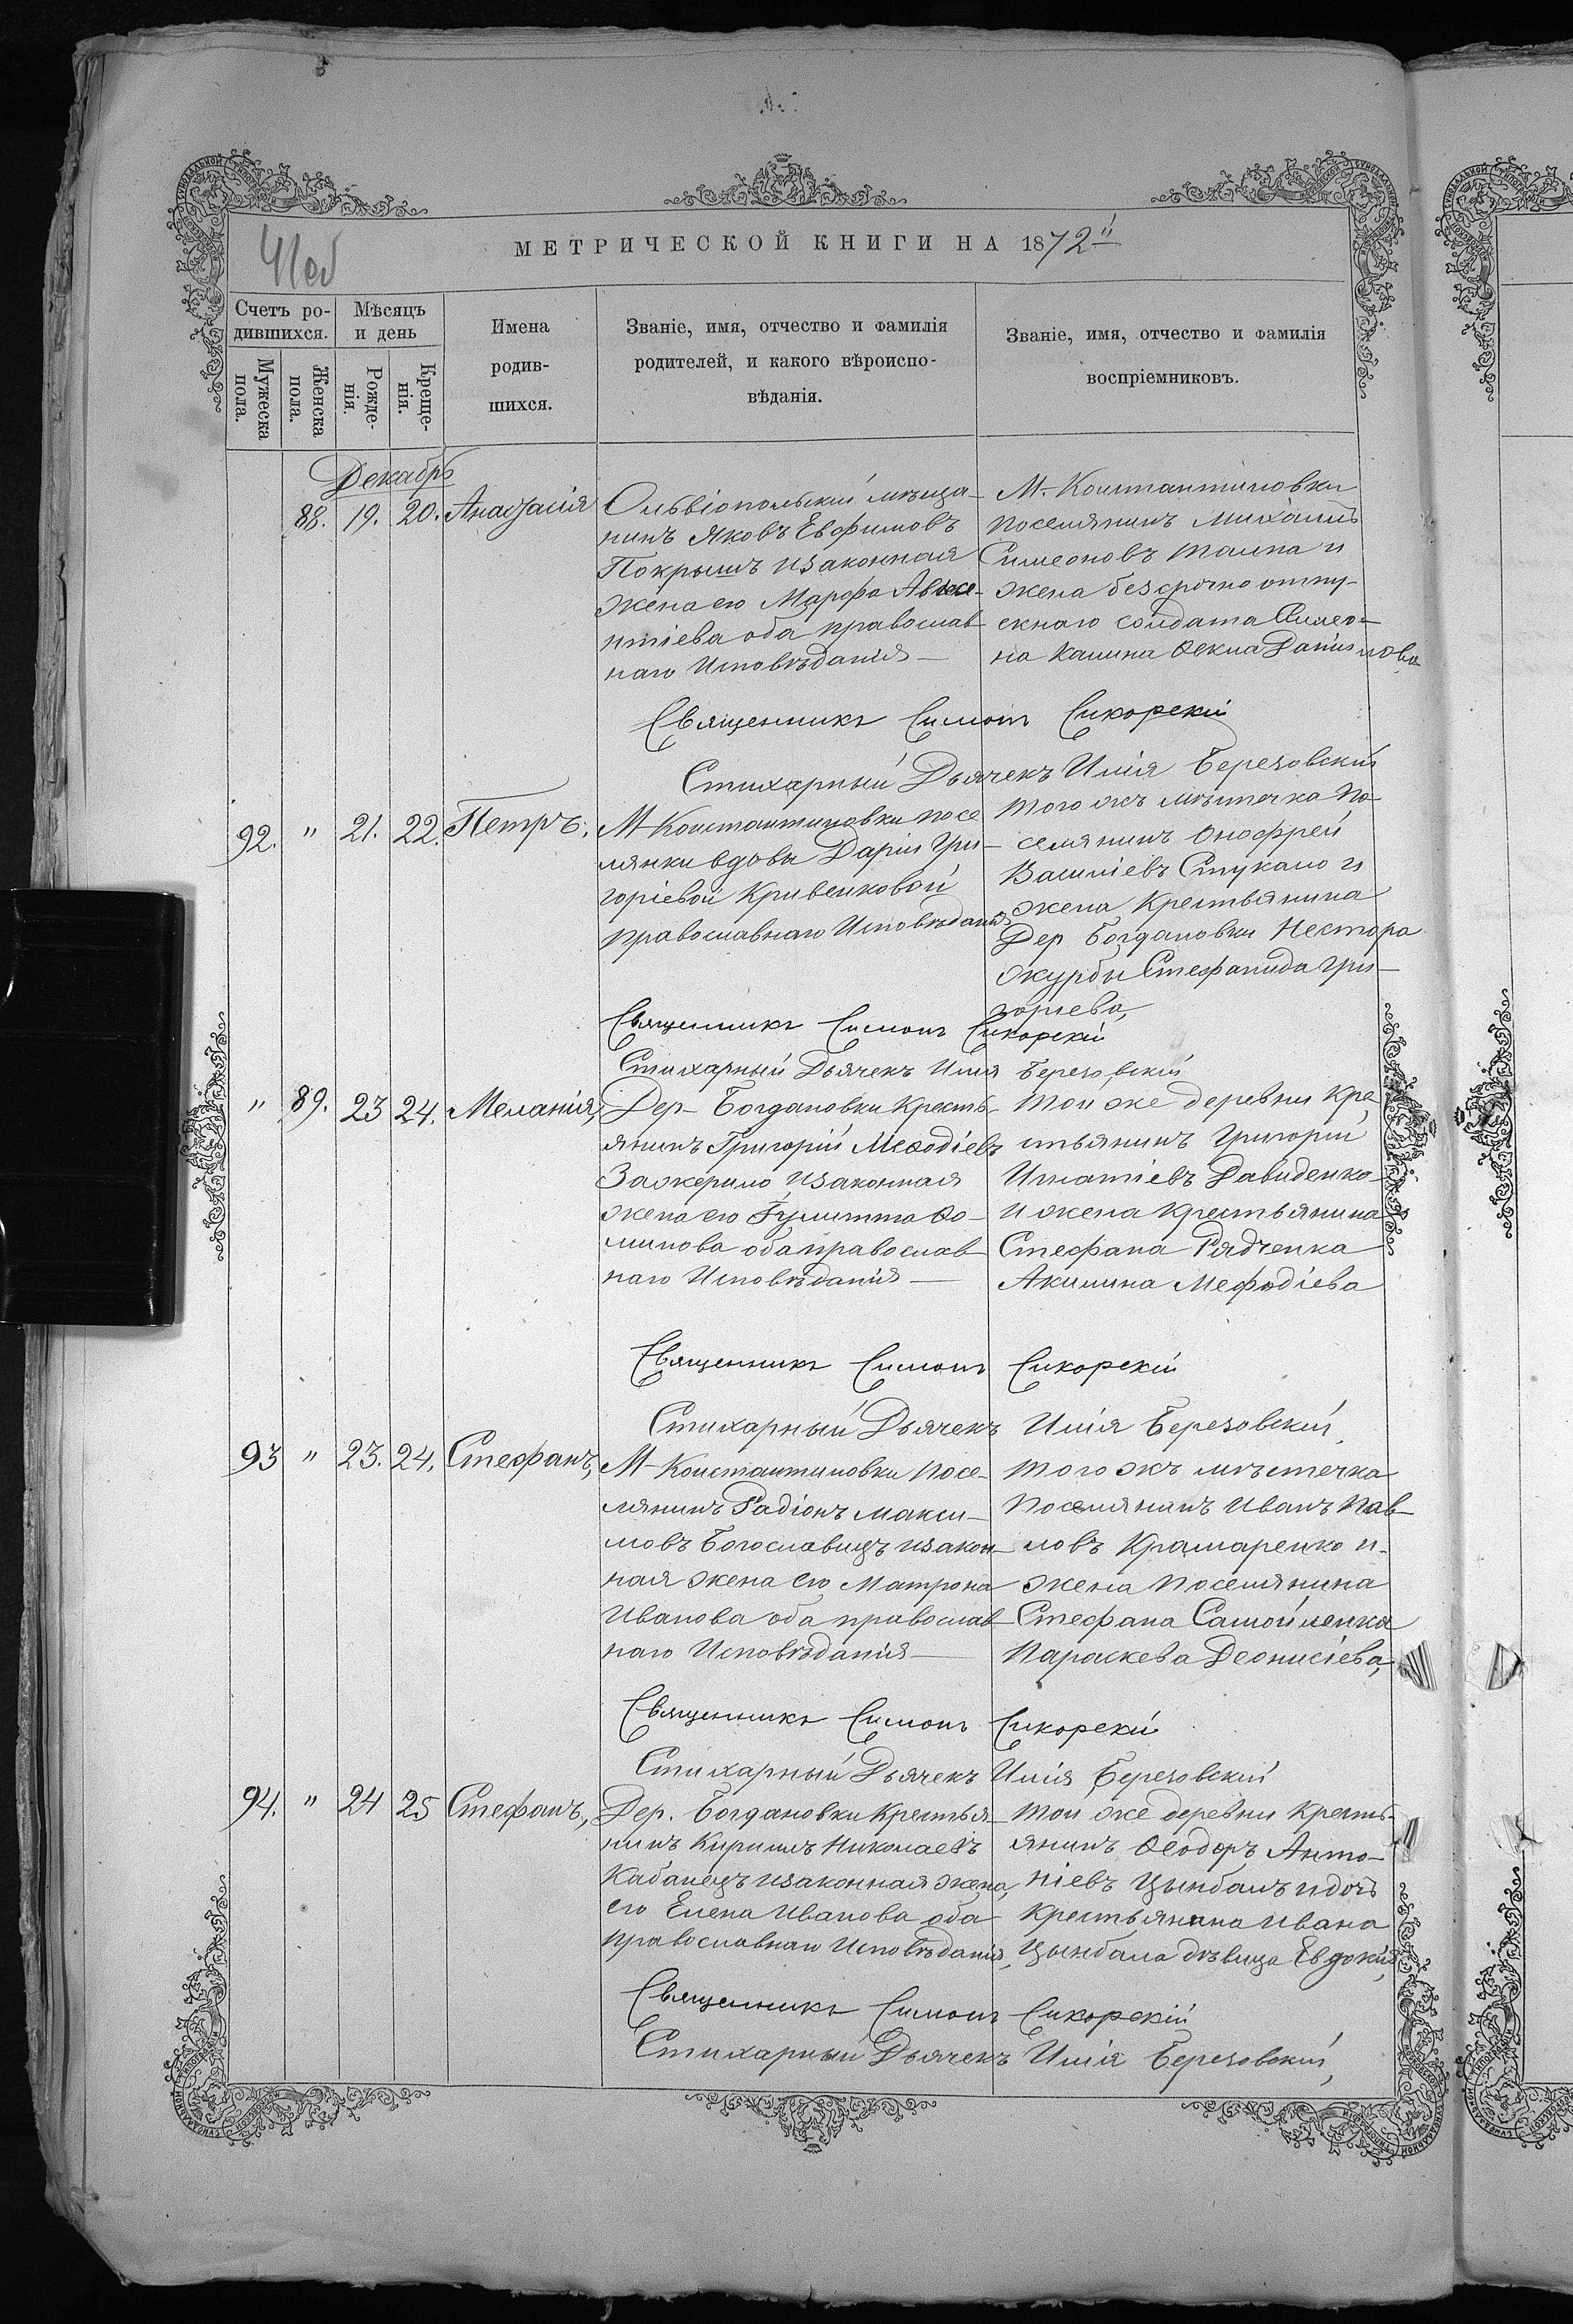 41об
МЕТРИЧЕСКОЙ КНИГИ НА 1872й
Счетъ ро-
дившихся.
Мужеска
пола.
Женска
пола.
Мѣсяцъ
и день
Рожде-
нія.
Креще-
нія.
Имена
родив-
шихся.
Званіе, имя, отчество и фамилія
родителей, и какого вѣроиспо-
вѣданія.
Званіе, имя, отчество и фамилія
воспріемниковъ.
Декабрь
88. 19. 20. Анастасія
Ольвіопольскій мѣща-
нинъ Яковъ Евфимовъ
Покрышъ изаконная
жена его Марфа Авксе-
нтіева оба православ
наго Исповѣданія —
М. Константиновки
поселянинъ Михаилъ
Симеоновъ Талпа и
жена безсрочно отпу-
скнаго солдата Симео-
на Калина Ѳекла Данилова
Священникъ Симонъ Сикорскій
Стихарный Дьячекъ Илія Березовскій
92. " 21. 22. Петръ,
М Константиновки посе
лянки вдовы Даріи Гри-
горіевой Кривенковой
православнаго Исповѣданія,
того жъ мѣстечка по-
селянинъ Онофрей
Василіевъ Стукало и
жена Крестьянина
Дер Богдановки Нестора
Журбы Стефанида Гри-
горьева,
Священникъ Симонъ Сикорскій
Стихарный Дьячекъ Илія Березовскій
" 89. 23 24. Меланія,
Дер- Богдановки Кресть-
янинъ Григорій Меѳодіевъ
Зажерило изаконная
жена его Гулитта Ѳо-
минова оба православ
наго Исповѣданія —
той же деревни Кре-
стьянинъ Григорій
Игнатіевъ Давиденко
и жена Крестьянина
Стефана Рядченка
Акилина Мефодіева
Священникъ Симонъ Сикорскій
Стихарный Дьячекъ Илія Березовскій,
93 " 23. 24. Стефанъ,
М Константиновки посе-
лянинъ Радіонъ Макси-
мовъ Богославецъ изакон-
ная жена его Матрона
Иванова оба православ
наго Исповѣданія —
того жъ мѣстечка
поселянинъ Иванъ Пав-
ловъ Крамаренко и
жена поселянина
Стефана Самойленка
Параскева Деонисіева,
Священникъ Симонъ Сикорскій
Стихарный Дьячекъ Илія Березовскій
94. " 24 25 Стефанъ,
Дер. Богдановки Крестья-
нинъ Кириллъ Николаевъ
Кабанецъ изаконная жена
его Елена Иванова оба
православнаго Исповѣданія,
той же деревни Кресть-
янинъ Ѳеодоръ Анто-
ніевъ Цымбалъ и дочь
Крестьянина Ивана
Цымбала дѣвица Евдокія,
Священникъ Симонъ Сикорскій
Стихарный Дьячекъ Илія Березовскій,